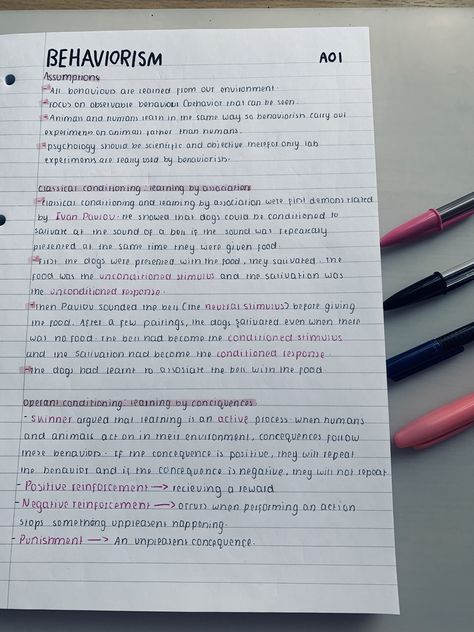 BEHAVIORISM AO1
Assumptions
- All behaviours are learned from our environment.
- Focus on observable behaviour (behavior that can be seen.
- Animals and humans learn in the same way so behaviorism carry out
experiments on animal rather than humans.
- psychology should be scientific and objective therefor only lab
experiments are really used by behaviorism.
Classical conditioning: learning by association
- Classical conditioning and learning by association were first demonstrated
by Ivan Pavlov. He showed that dogs could be conditioned to
salivate at the sound of a bell if the sound was repeatedly
presented at the same time they were given food.
- First the dogs were presented with the food, they salivated. The
food was the unconditioned stimulus and the salivation was
the unconditioned response.
- then Pavlov sounded the bell (the neutral stimulus) before giving
the food. After a few pairings, the dogs salivated even when there
was no food. the bell had become the conditioned stimulus
and the salivation had become the conditioned response.
- the dogs had learnt to assosiate the bell with the food.
operant conditioning: learning by concequences
- Skinner argued that learning is an active process. when humans
and animals act on in their environment, concequences follow
these behaviors. If the concequence is positive, they will repeat
the behavior and if the concequence is negative, they will not repeat
- Positive reinforcement → recieving a reward
- Negative reinforcement → occurs when performing an action
stops something unpleasent happening.
- Punishment → An unpleasent concequence.